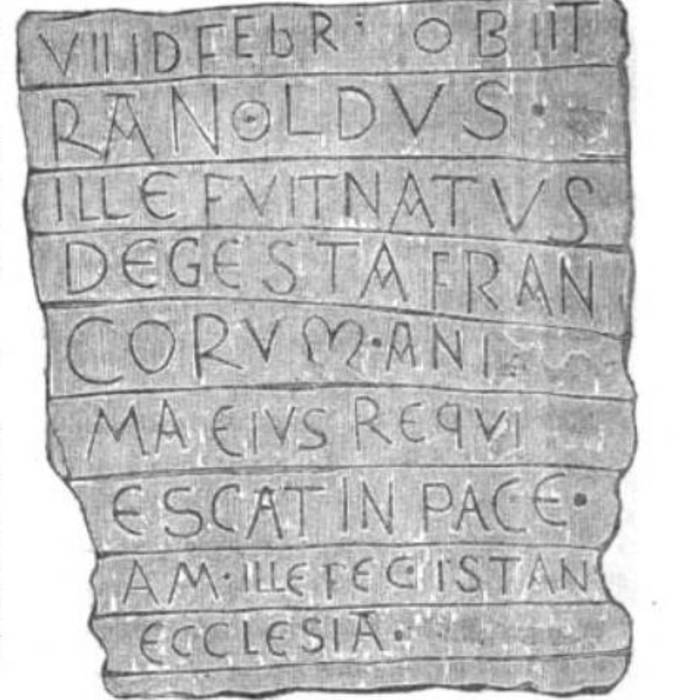 VIIIDFEbR· OBIIT
RANOLDVS·
ILLE FVITNATVS
DEGESTA FRAN
CORVM·ANI
MA EIVS REqVI
ESCAT IN PACE·
AM·ILLE FECiT ISTAN
ECCLESIA·